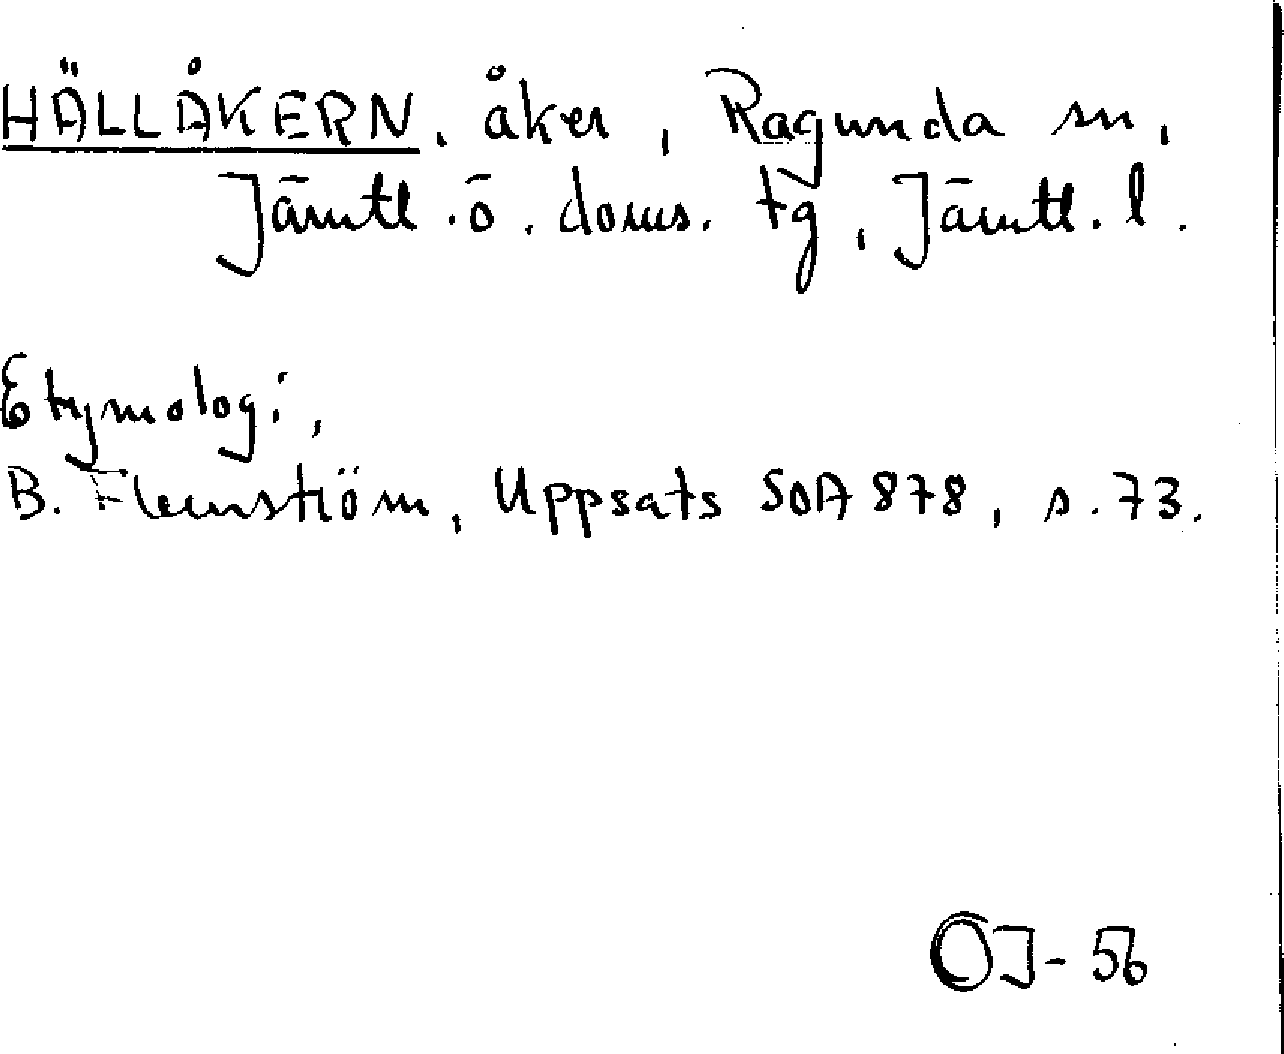 HÄLLÅKERN, åker, Ragunda sn,
Jämtl. ö. doms. tg, Jämtl. l.
Etymologi,
B. Flemström, Uppsats SOA 878, s. 73.
OJ-56